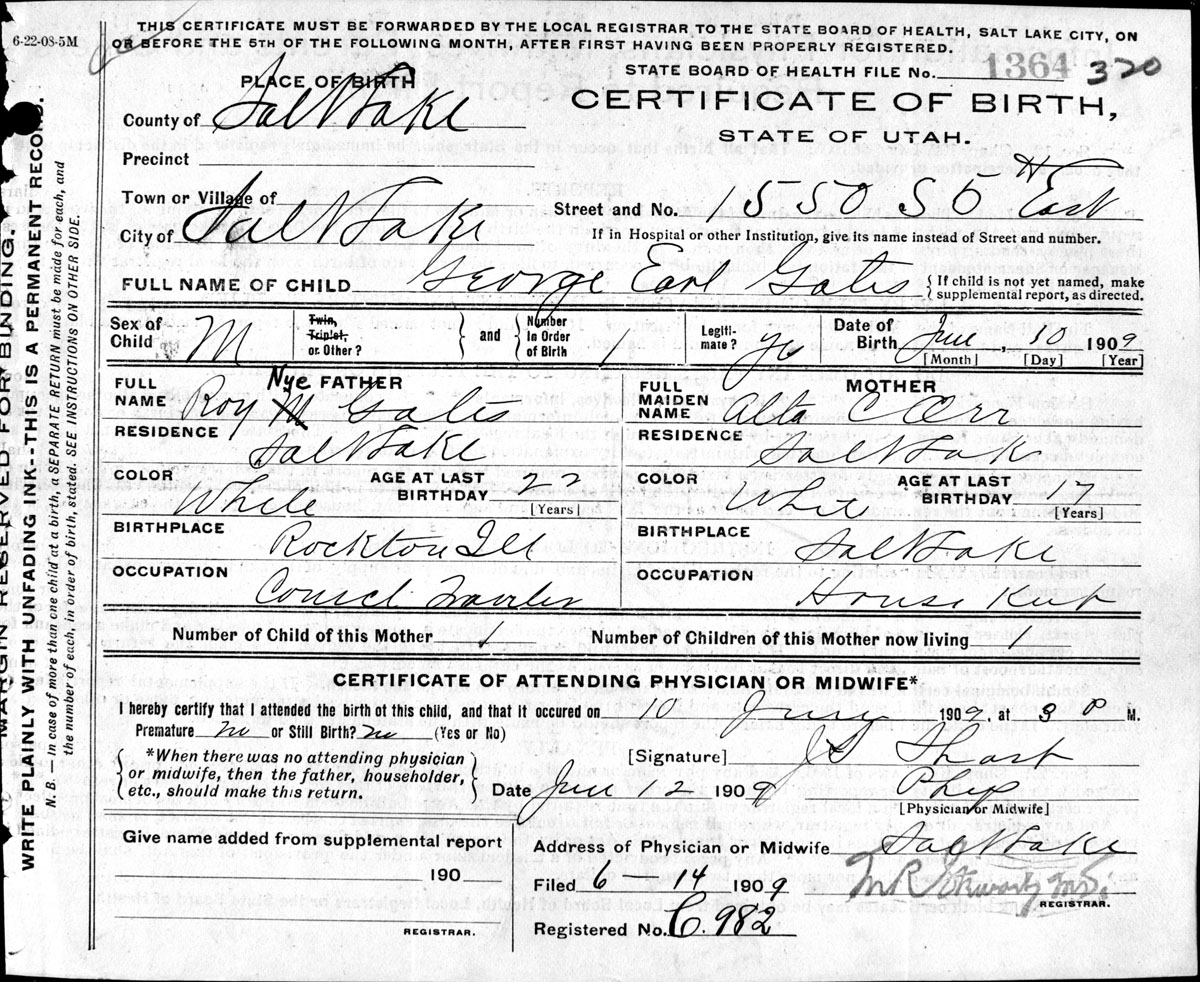 6-22-08-5M
THIS CERTIFICATE MUST BE FORWARDED BY THE LOCAL REGISTRAR TO THE STATE BOARD OF HEALTH, SALT LAKE CITY, ON
OR BEFORE THE 5TH OF THE FOLLOWING MONTH, AFTER FIRST HAVING BEEN PROPERLY REGISTERED.
STATE BOARD OF HEALTH FILE No. 1364 320
CERTIFICATE OF BIRTH,
STATE OF UTAH.
PLACE OF BIRTH
County of Salt Lake
Precinct
Town or Village of
City of Salt Lake
Street and No. 1550 So East
If in Hospital or other Institution, give its name instead of Street and number.
FULL NAME OF CHILD George Earl Gates { If child is not yet named, make
supplemental report, as directed.
Sex of Child M
Twin, Triplet, or Other? } and { Number in Order of Birth 1
Legitimate? yes
Date of Birth June 10 1909
[Month] [Day] [Year]
FATHER
FULL NAME Roy Nye Gates
RESIDENCE Salt Lake
COLOR White AGE AT LAST BIRTHDAY 22
[Years]
BIRTHPLACE Rockton Ill
OCCUPATION
MOTHER
FULL MAIDEN NAME Alta C Orr
RESIDENCE Salt Lake
COLOR White AGE AT LAST BIRTHDAY 17
[Years]
BIRTHPLACE Salt Lake
OCCUPATION House Keep
Number of Child of this Mother 1 Number of Children of this Mother now living 1
CERTIFICATE OF ATTENDING PHYSICIAN OR MIDWIFE*
I hereby certify that I attended the birth of this child, and that it occured on 10 June 1909, at M.
Premature no or Still Birth? no (Yes or No)
*When there was no attending physician
or midwife, then the father, householder,
etc., should make this return.
[Signature]
Date June 12 1909 Phys
[Physician or Midwife]
Give name added from supplemental report
190
REGISTRAR.
Address of Physician or Midwife Salt Lake
Filed 6 14 1909
REGISTRAR.
Registered No. C. 982
MARGIN RESERVED FOR BINDING.
WRITE PLAINLY WITH UNFADING INK--THIS IS A PERMANENT RECORD.
N. B. — In case of more than one child at a birth, a SEPARATE RETURN must be made for each, and
the number of each, in order of birth, stated. SEE INSTRUCTIONS ON OTHER SIDE.